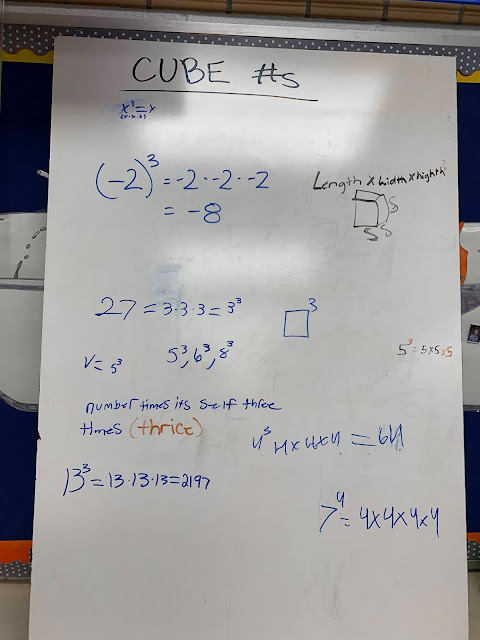 CUBE #s
x³=x
(x·x·x)
(-2)³ = -2 · -2 · -2
= -8
Length x width x highth
S
S S
27 = 3·3·3 = 3³
3
5³ = 5x5x5
V = s³
5³, 6³, 8³
number times its self three
times (thrice)
4³ 4x4x4 = 64
13³ = 13·13·13 = 2197
7⁴ = 4x4x4x4